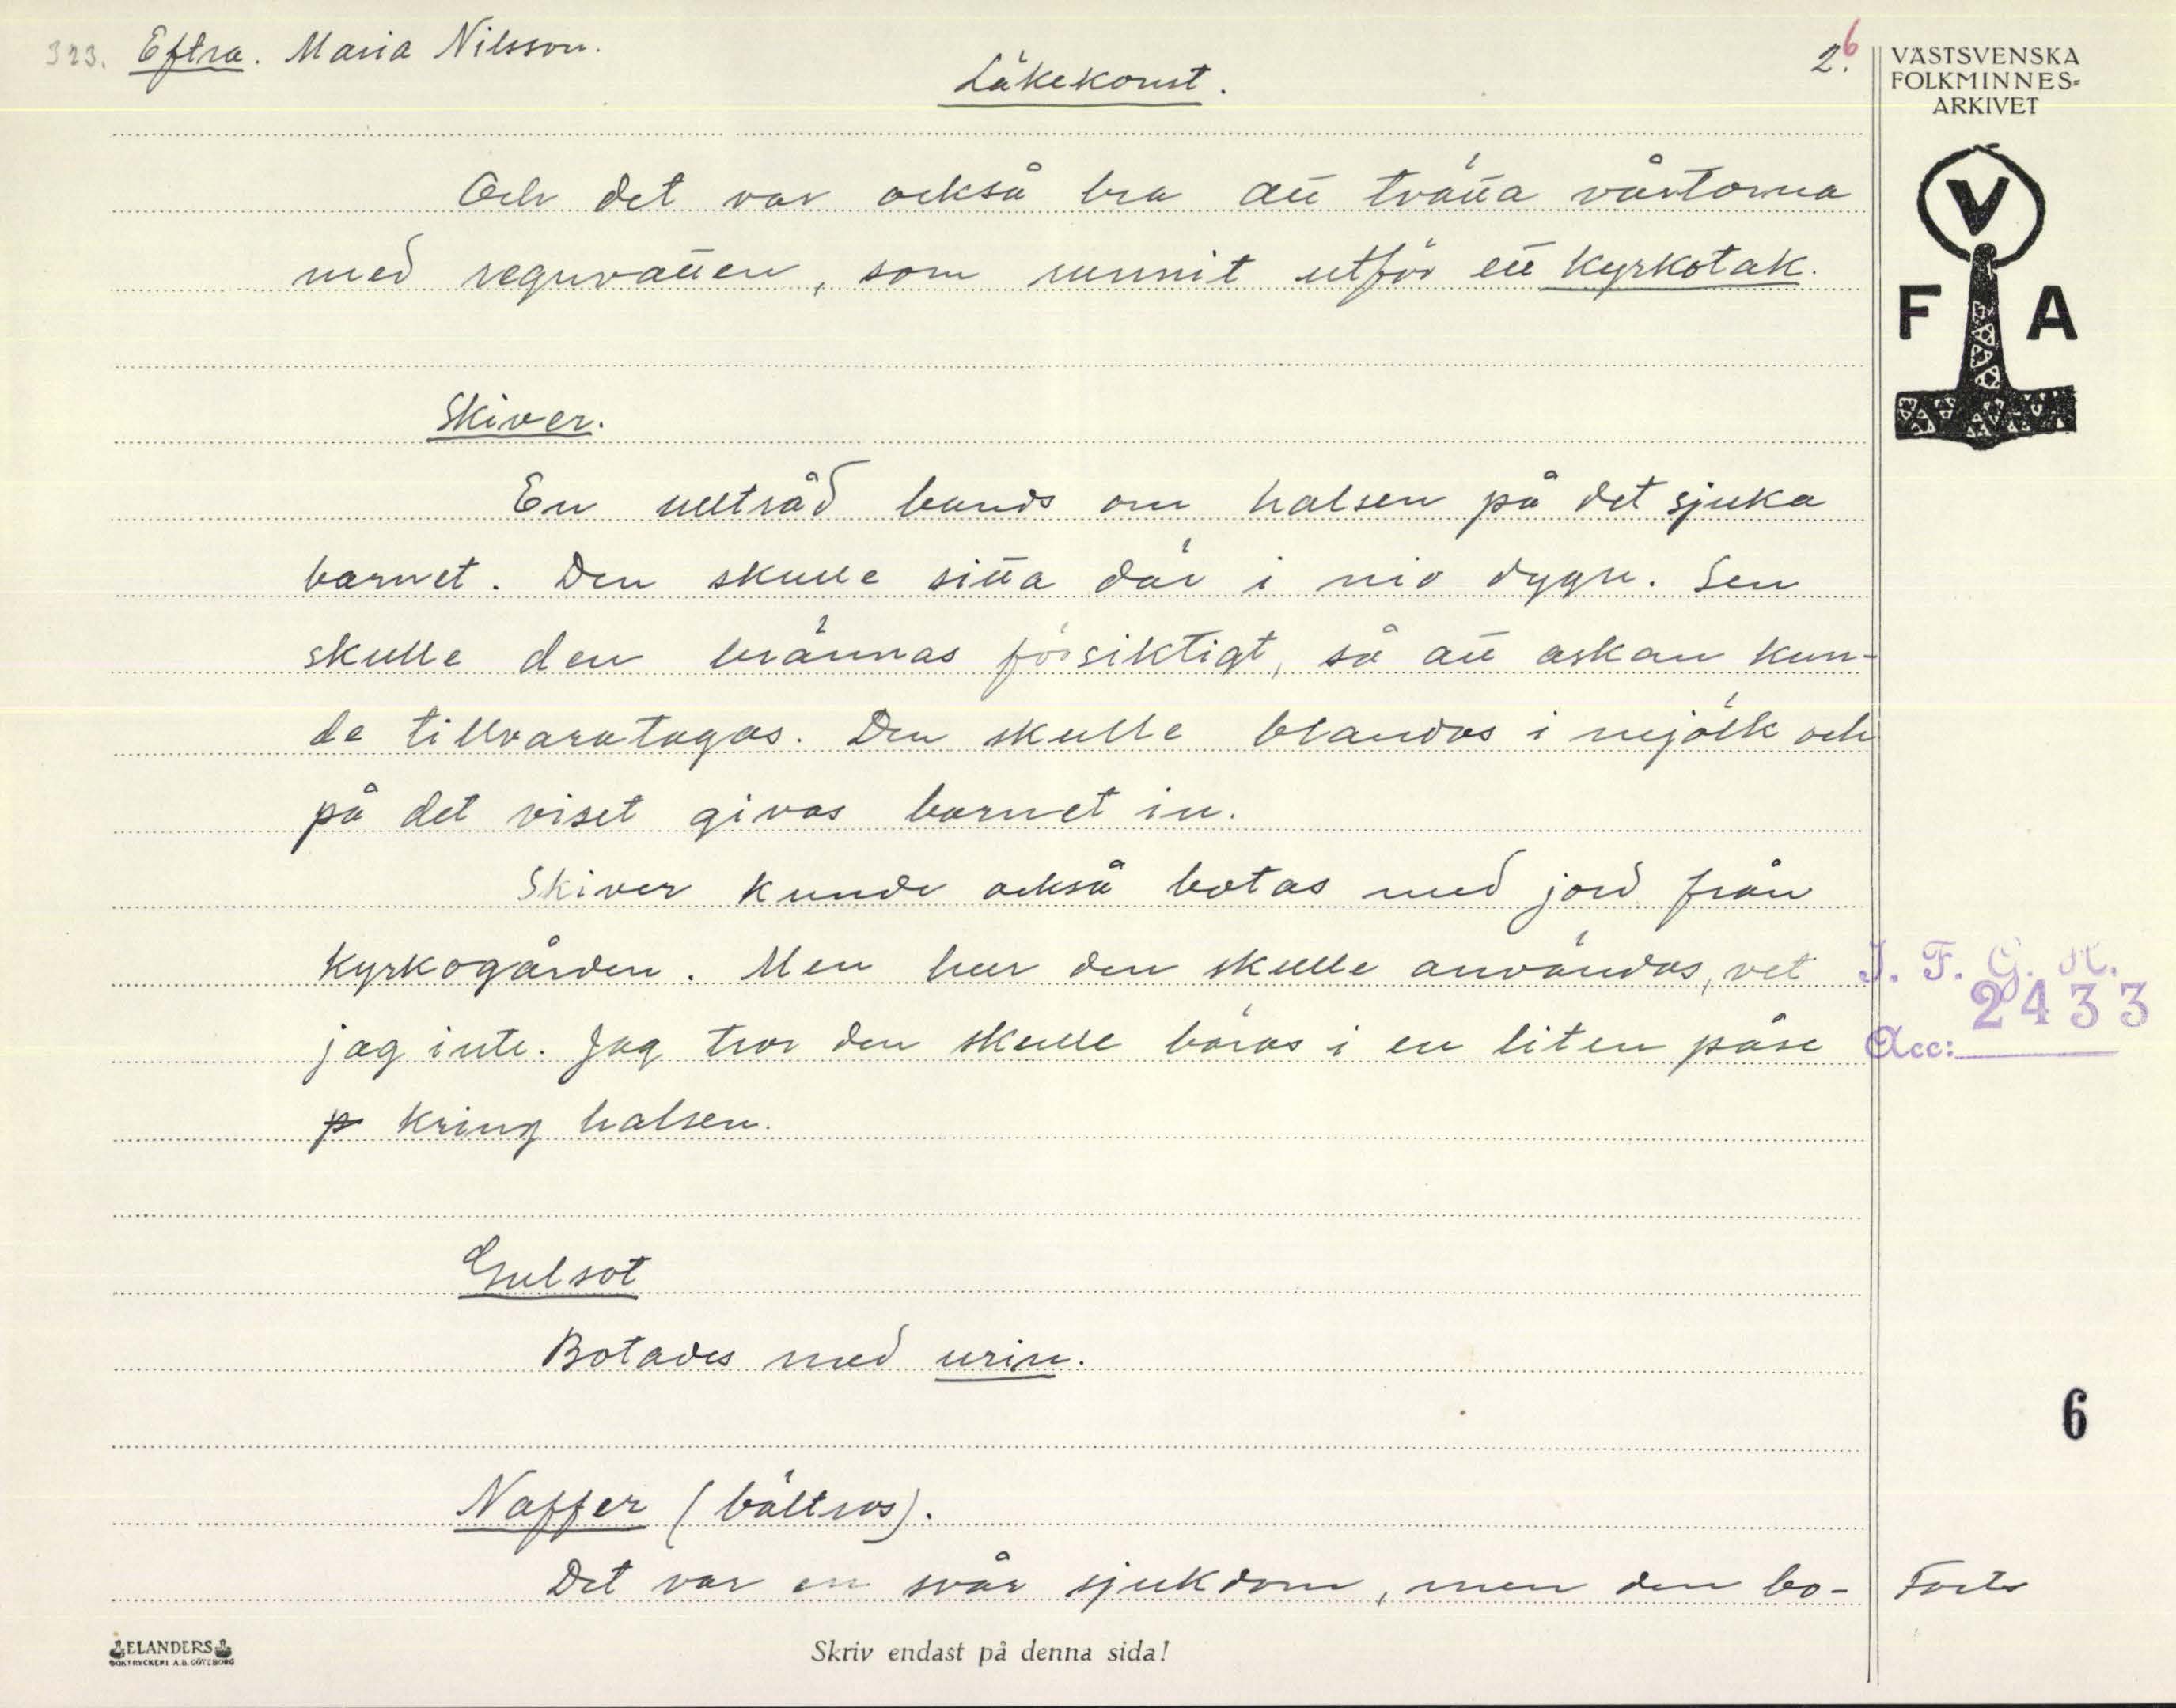 323. Eftra. Maria Nilsson.
Läkekonst.
2.6
VÄSTSVENSKA
FOLKMINNES-
ARKIVET
V
F A
Och det var också bra att tvätta vårtorna
med regnvatten, som runnit utför ett kyrkotak.
Skiver.
En ulltråd bands om halsen på det sjuka
barnet. Den skulle sitta där i nio dygn. Sen
skulle den brännas försiktigt, så att askan kun-
de tillvaratagas. Den skulle blandas i mjölk och
på det viset givas barnet in.
Skiver kunde också botas med jord från
kyrkogården. Men hur den skulle användas, vet
jag inte. Jag tror den skulle bäras i en liten påse
p kring halsen.
I. F. G. H.
2433
Acc:
Gulsot
Botades med urin.
6
Naffer (bältros).
Det var en svår sjukdom, men den bo-
Forts
ELANDERS
BOKTRYCKERI A.B. GÖTEBORG
Skriv endast på denna sida!